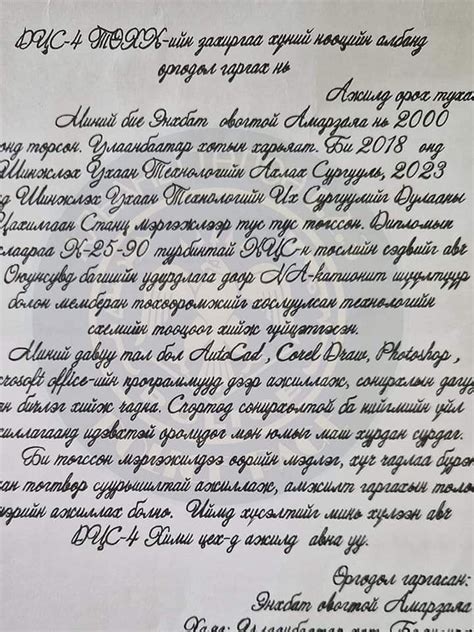 ДЦС-4 ТӨХК-ийн захиргаа хүний нөөцийн албанд
өргөдөл гаргах нь
Ажилд орох тухай
Миний бие Энхбат овогтой Амарзаяа нь 2000
онд төрсөн. Улаанбаатар хотын харьяат. Би 2018 онд
Шинжлэх Ухаан Технологийн Ахлах Сургууль, 2023
онд Шинжлэх Ухаан Технологийн Их Сургуулийг Дулааны
Цахилгаан Станц мэргэжлээр тус тус төгссөн. Дипломын
К-25-90 турбинтай ДЦС-н төслийн сэдвийг авч
Оюунсувд багшийн удирдлага доор NA-катионит шүүлтүүр
болон мембран төхөөрөмжийг хослуулсан технологийн
схемийн тооцоог хийж гүйцэтгэсэн.
Миний давуу тал бол AutoCad, Corel Draw, Photoshop,
crosoft office-ийн программууд дээр ажиллаж, сонирхлын дагуу
бичлэг хийж чадна. Спортод сонирхолтой ба нийгмийн үйл
ажиллагаанд идэвхтэй оролцдог мөн юмыг маш хурдан сурдаг.
Би төгссөн мэргэжилдээ өөрийн мэдлэг, хүч чадлаа бүрэн
тогтвор суурьшилтай ажиллаж, амжилт гаргахын төлөө
ажиллах болно. Иймд хүсэлтийг минь хүлээн авч
ДЦС-4 Хими цех-д ажилд авна уу.
Өргөдөл гаргасан:
Энхбат овогтой Амарзаяа
Хаяг: Улаанбаатар хот